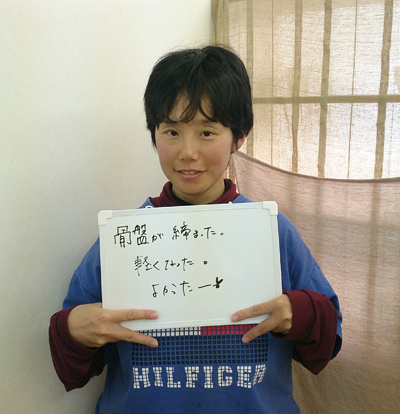 骨盤が 締まった。
軽くなった。
よかったー
HILFIGER